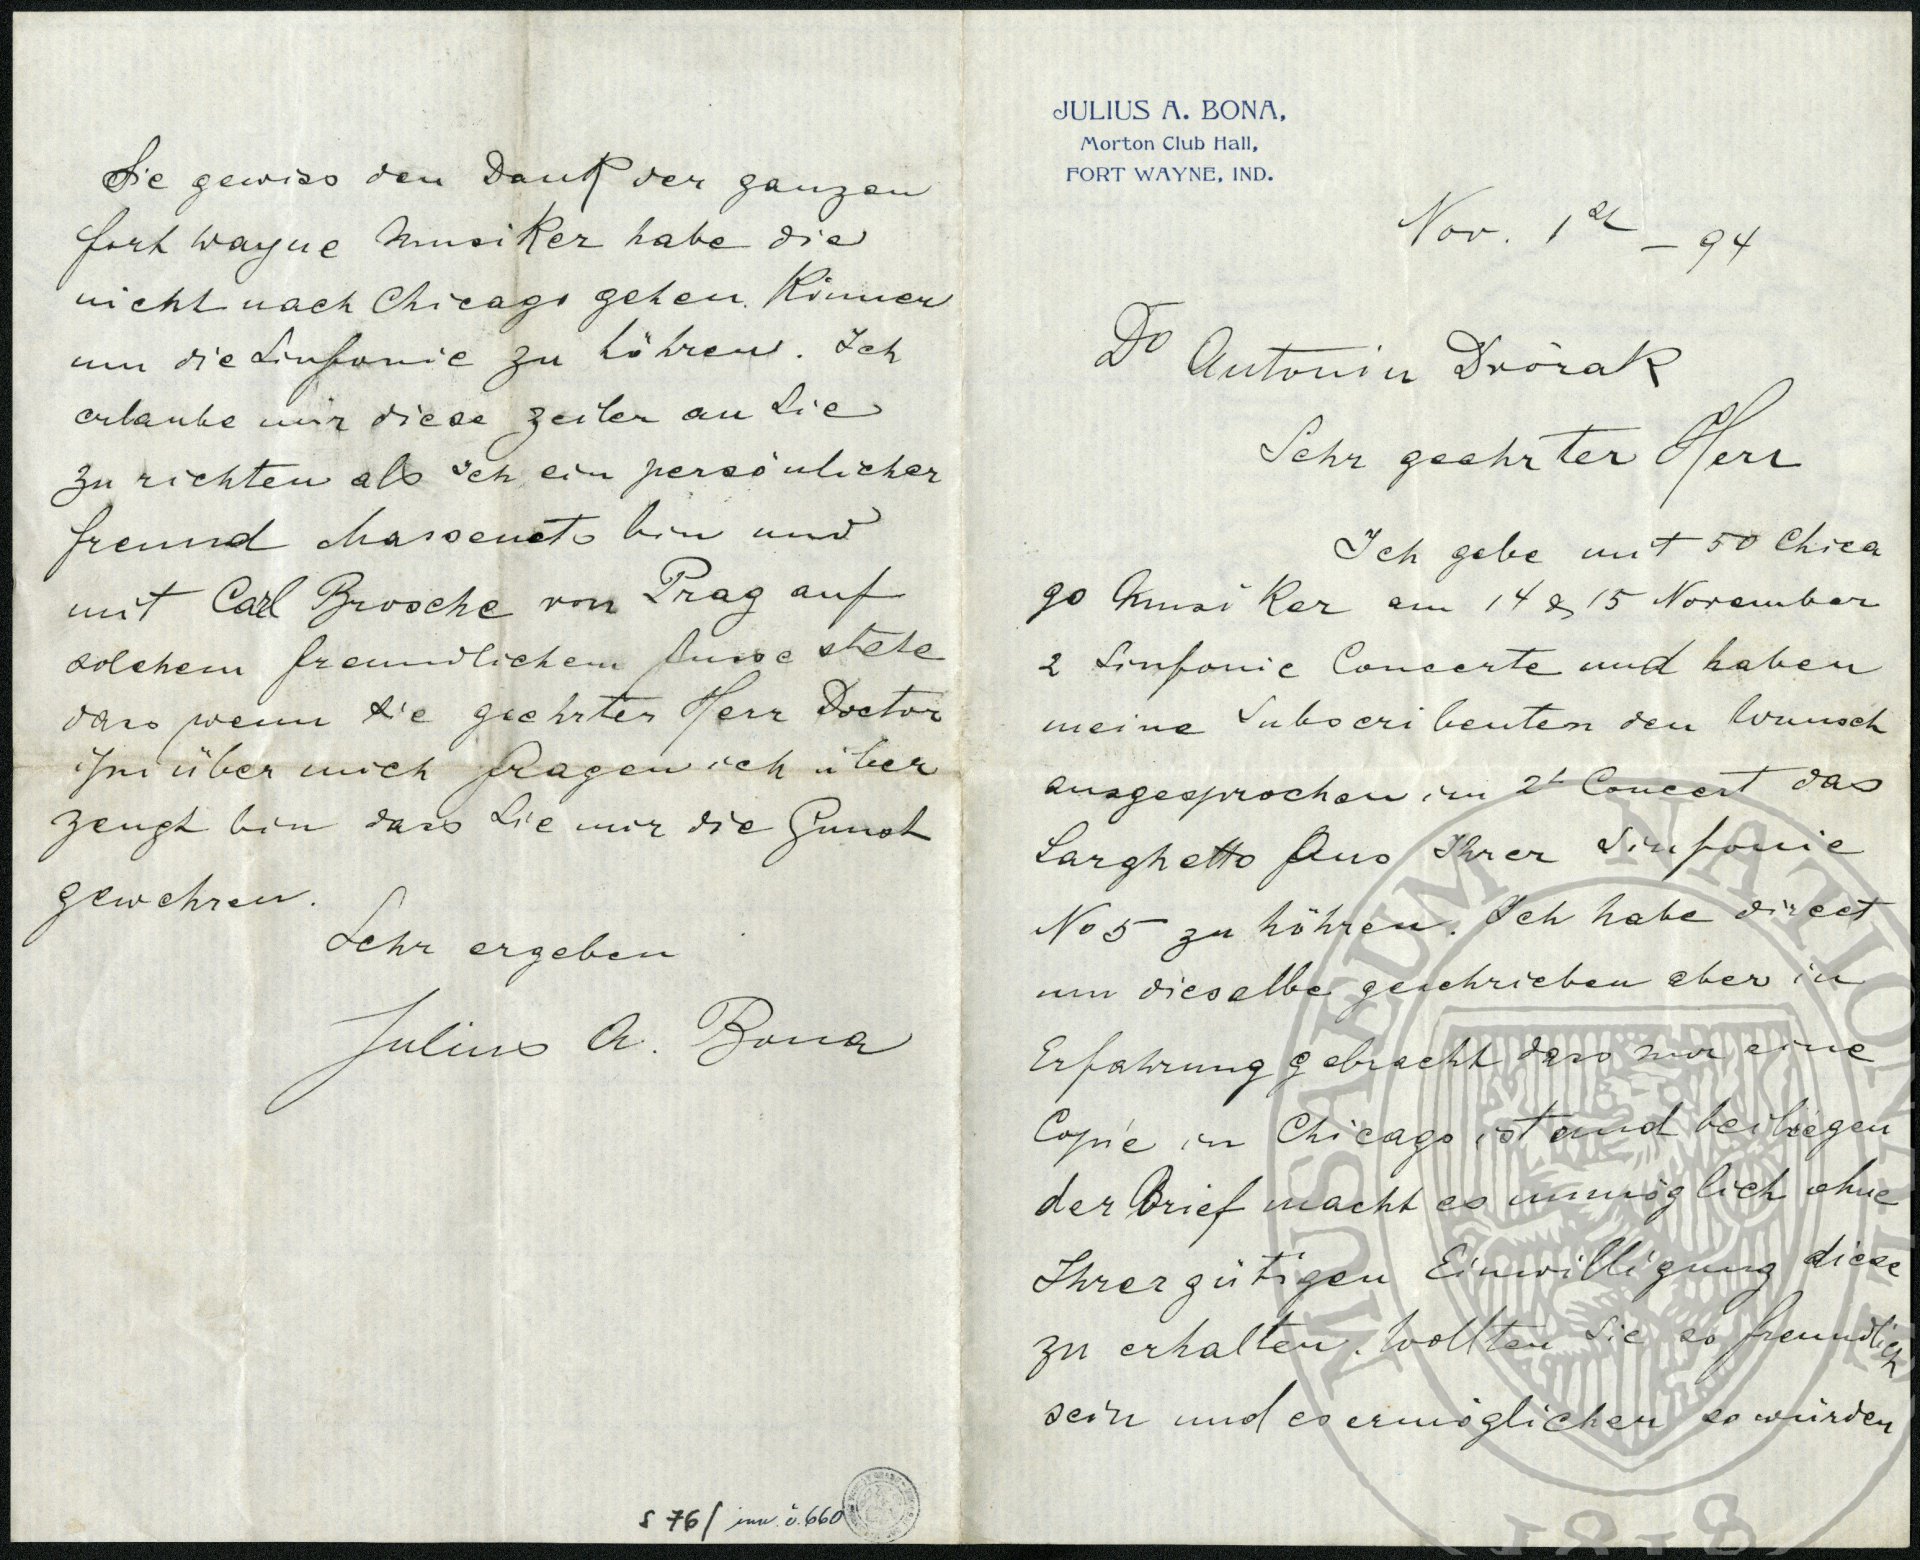 JULIUS A. BONA,
Morton Club Hall,
FORT WAYNE, IND.
Nov. 1st – 94
Dr Antonin Dvòrak
Sehr geehrter Herr
Ich gebe mit 50 Chica
go Musiker am 14 & 15 November
2 Sinfonie Concerte und haben
meine Subscribenten den Wunsch
ausgesprochen im 2t Concert das
Larghetto Aus Ihrer Sinfonie
No 5 zu höhren. Ich habe direct
um dieselbe geschrieben aber in
Erfahrung gebracht dass nur eine
Copie in Chicago ist und beiliegen
der Brief macht es unmöglich ohne
Ihrer gütigen Einwilligung diese
zu erhalten. Wollten Sie so freundlich
sein und es ermöglichen so würden
Sie gewiss den Dank der ganzen
fort Wayne Musiker habe die
nicht nach Chicago gehen. Können
um die Sinfonie zu höhren. Ich
erlaube mir diese Zeilen an Sie
zu richten als Ich ein persönlicher
freund Massenets bin und
mit Carl Brosche von Prag auf
solchem freundlichem fusse stehe
dass wenn Sie geehrter Herr Doctor
ihn über mich fragen ich über
zeugt bin dass Sie mir die Gunst
gewehren.
Sehr ergeben
Julius A. Bona
S 76/ inv. č. 660
MUSAEUM NATIONALE
1818